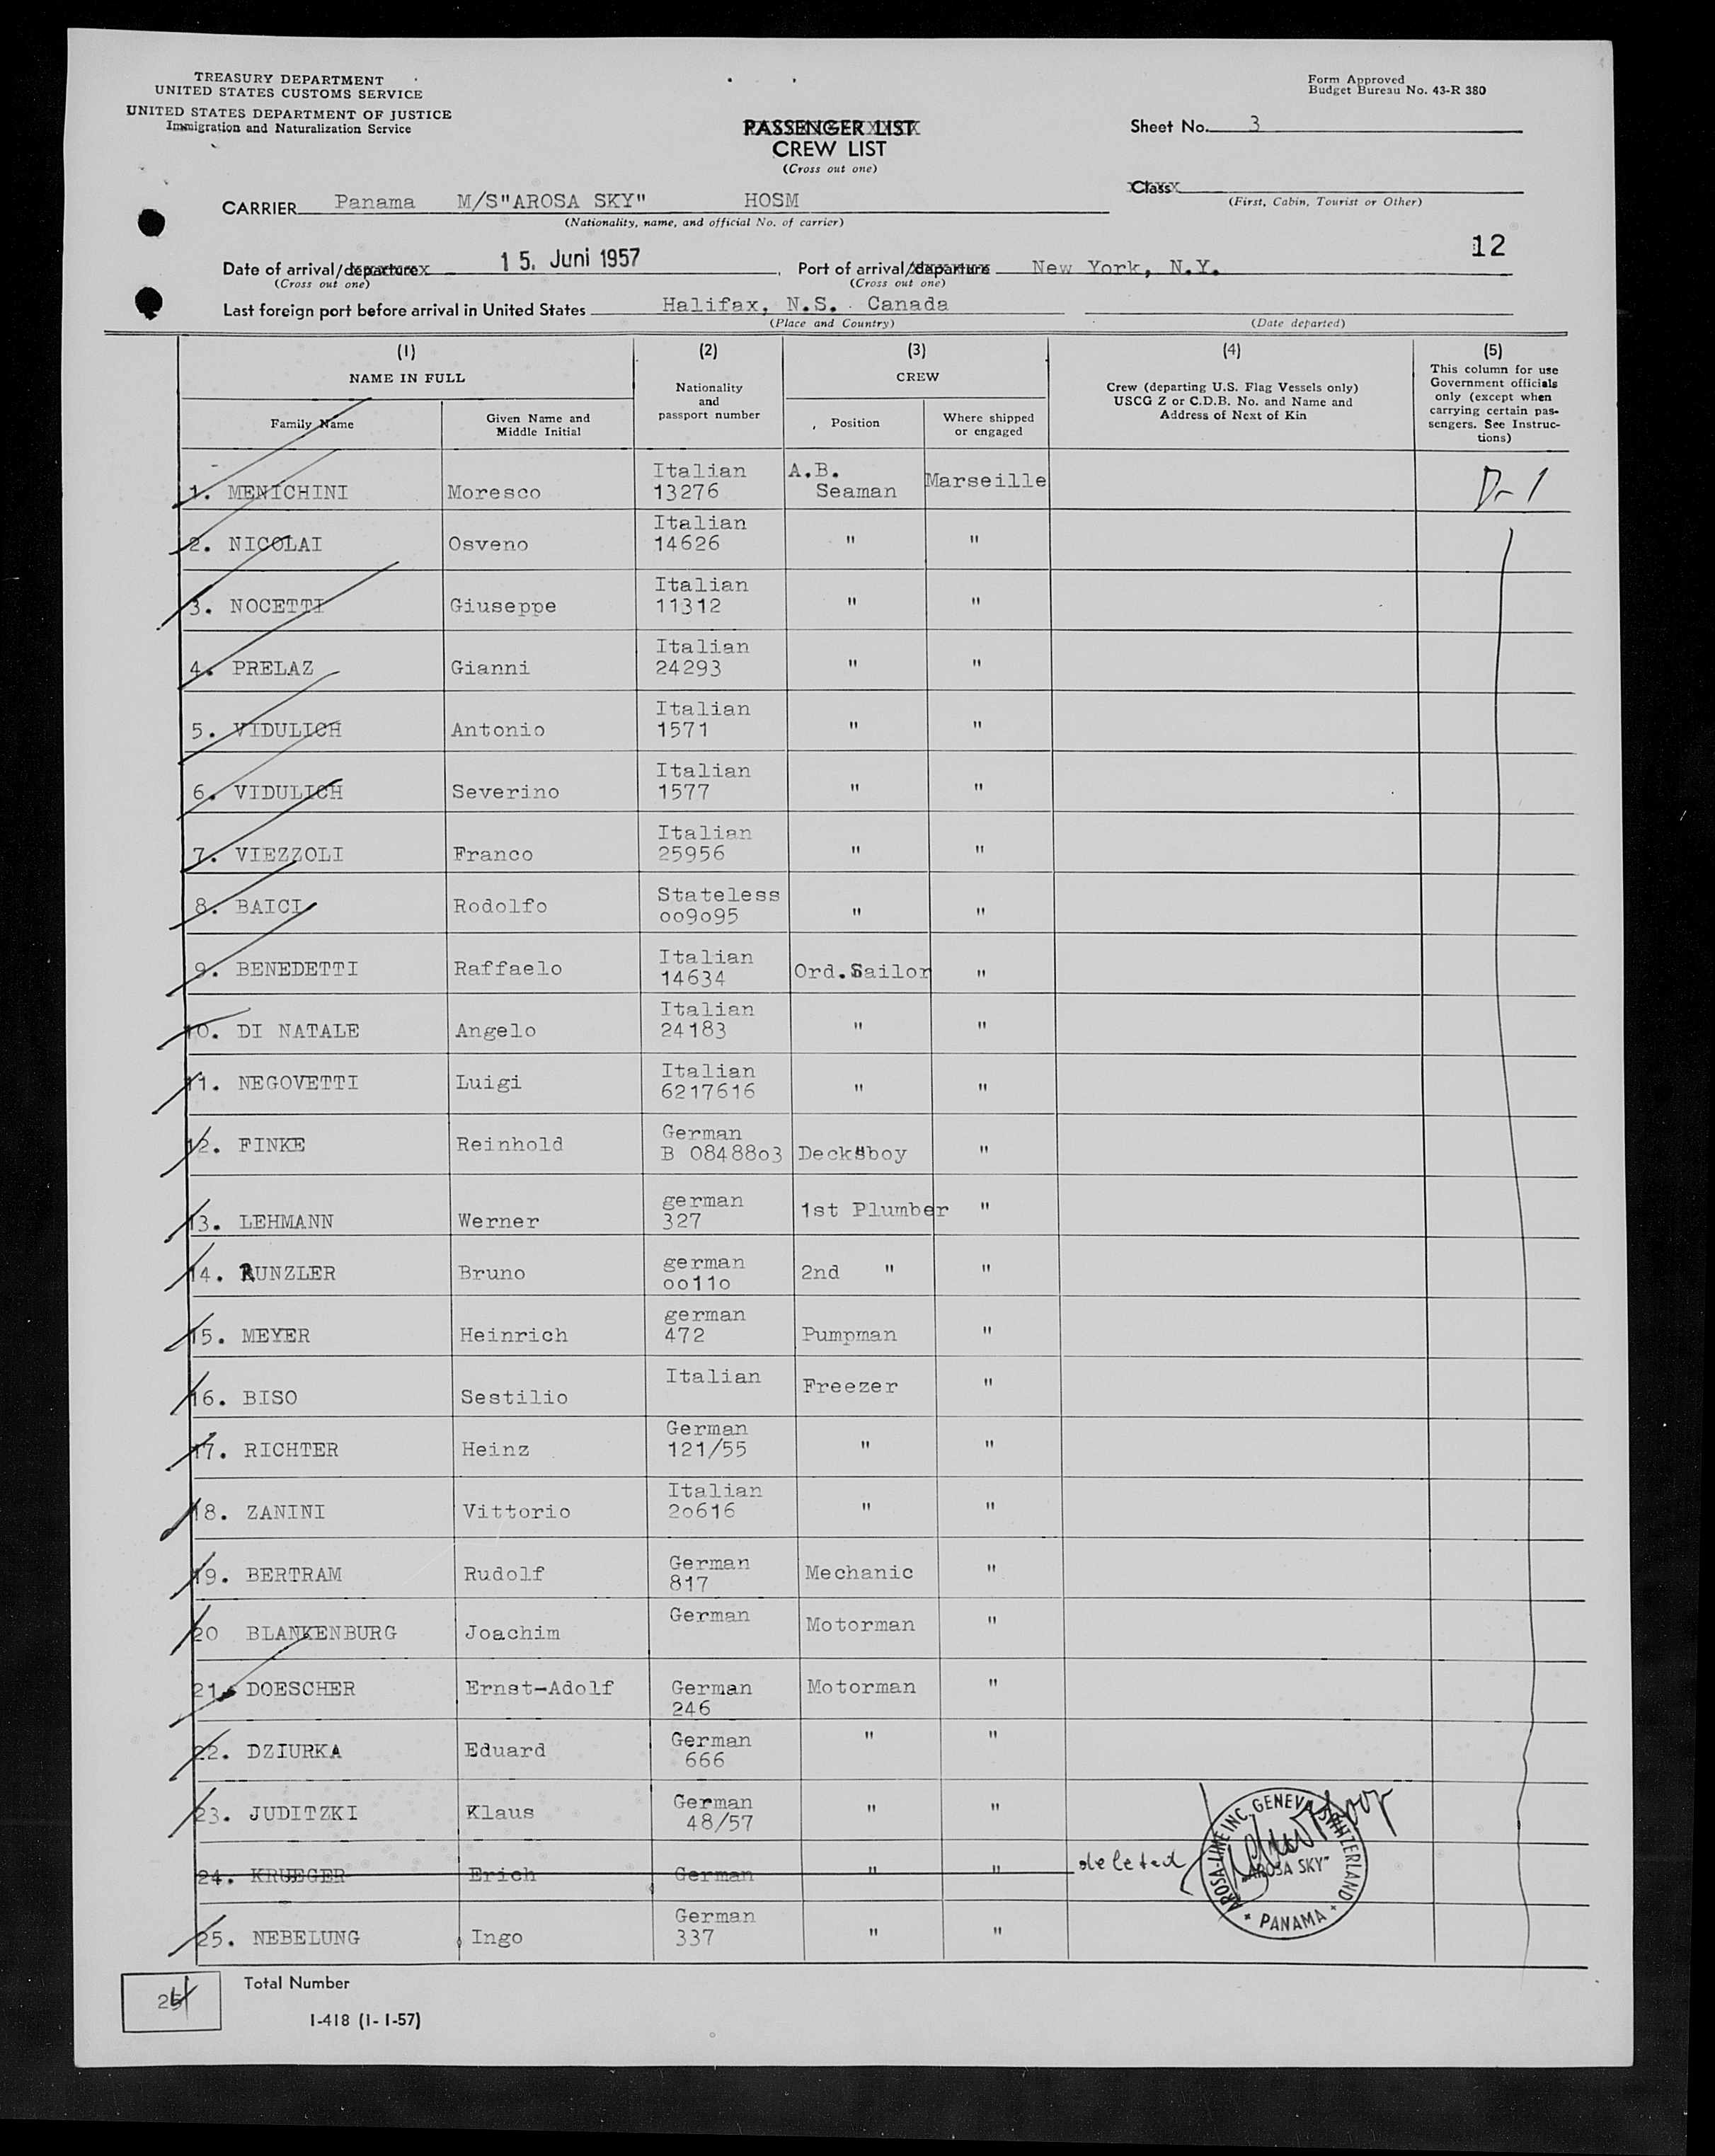 TREASURY DEPARTMENT
UNITED STATES CUSTOMS SERVICE
UNITED STATES DEPARTMENT OF JUSTICE
Immigration and Naturalization Service
Form Approved
Budget Bureau No. 43-R 380
PASSENGER LIST
CREW LIST
(Cross out one)
Sheet No. 3
Class
(First, Cabin, Tourist or Other)
CARRIER Panama M/S"AROSA SKY" HOSM
(Nationality, name, and official No. of carrier)
12
Date of arrival/departure 15. Juni 1957 Port of arrival/departure New York, N.Y.
(Cross out one) (Cross out one)
Last foreign port before arrival in United States Halifax, N.S. Canada
(Place and Country) (Date departed)
(1) (2) (3) (4) (5)
NAME IN FULL
Family Name
Given Name and Middle Initial
Nationality and passport number
CREW
Position
Where shipped or engaged
Crew (departing U.S. Flag Vessels only)
USCG Z or C.D.B. No. and Name and
Address of Next of Kin
This column for use
Government officials
only (except when
carrying certain pas-
sengers. See Instruc-
tions)
1. MENICHINI Moresco Italian 13276 A.B. Seaman Marseille D-1
2. NICOLAI Osveno Italian 14626 " "
3. NOCETTI Giuseppe Italian 11312 " "
4. PRELAZ Gianni Italian 24293 " "
5. VIDULICH Antonio Italian 1571 " "
6. VIDULICH Severino Italian 1577 " "
7. VIEZZOLI Franco Italian 25956 " "
8. BAICI Rodolfo Stateless oo9o95 " "
9. BENEDETTI Raffaelo Italian 14634 Ord.Sailor "
10. DI NATALE Angelo Italian 24183 " "
11. NEGOVETTI Luigi Italian 6217616 " "
12. FINKE Reinhold German B 08488o3 Decksboy "
13. LEHMANN Werner german 327 1st Plumber "
14. RUNZLER Bruno german oo11o 2nd " "
15. MEYER Heinrich german 472 Pumpman "
16. BISO Sestilio Italian Freezer "
17. RICHTER Heinz German 121/55 " "
18. ZANINI Vittorio Italian 2o616 " "
19. BERTRAM Rudolf German 817 Mechanic "
20 BLANKENBURG Joachim German Motorman "
21. DOESCHER Ernst-Adolf German 246 Motorman "
22. DZIURKA Eduard German 666 " "
23. JUDITZKI Klaus German 48/57 " "
24. KRUEGER Erich German " " deleted
25. NEBELUNG Ingo German 337 " "
AROSA-LINE INC. GENEVA SWITZERLAND
"AROSA SKY"
* PANAMA *
24 Total Number
I-418 (1-1-57)